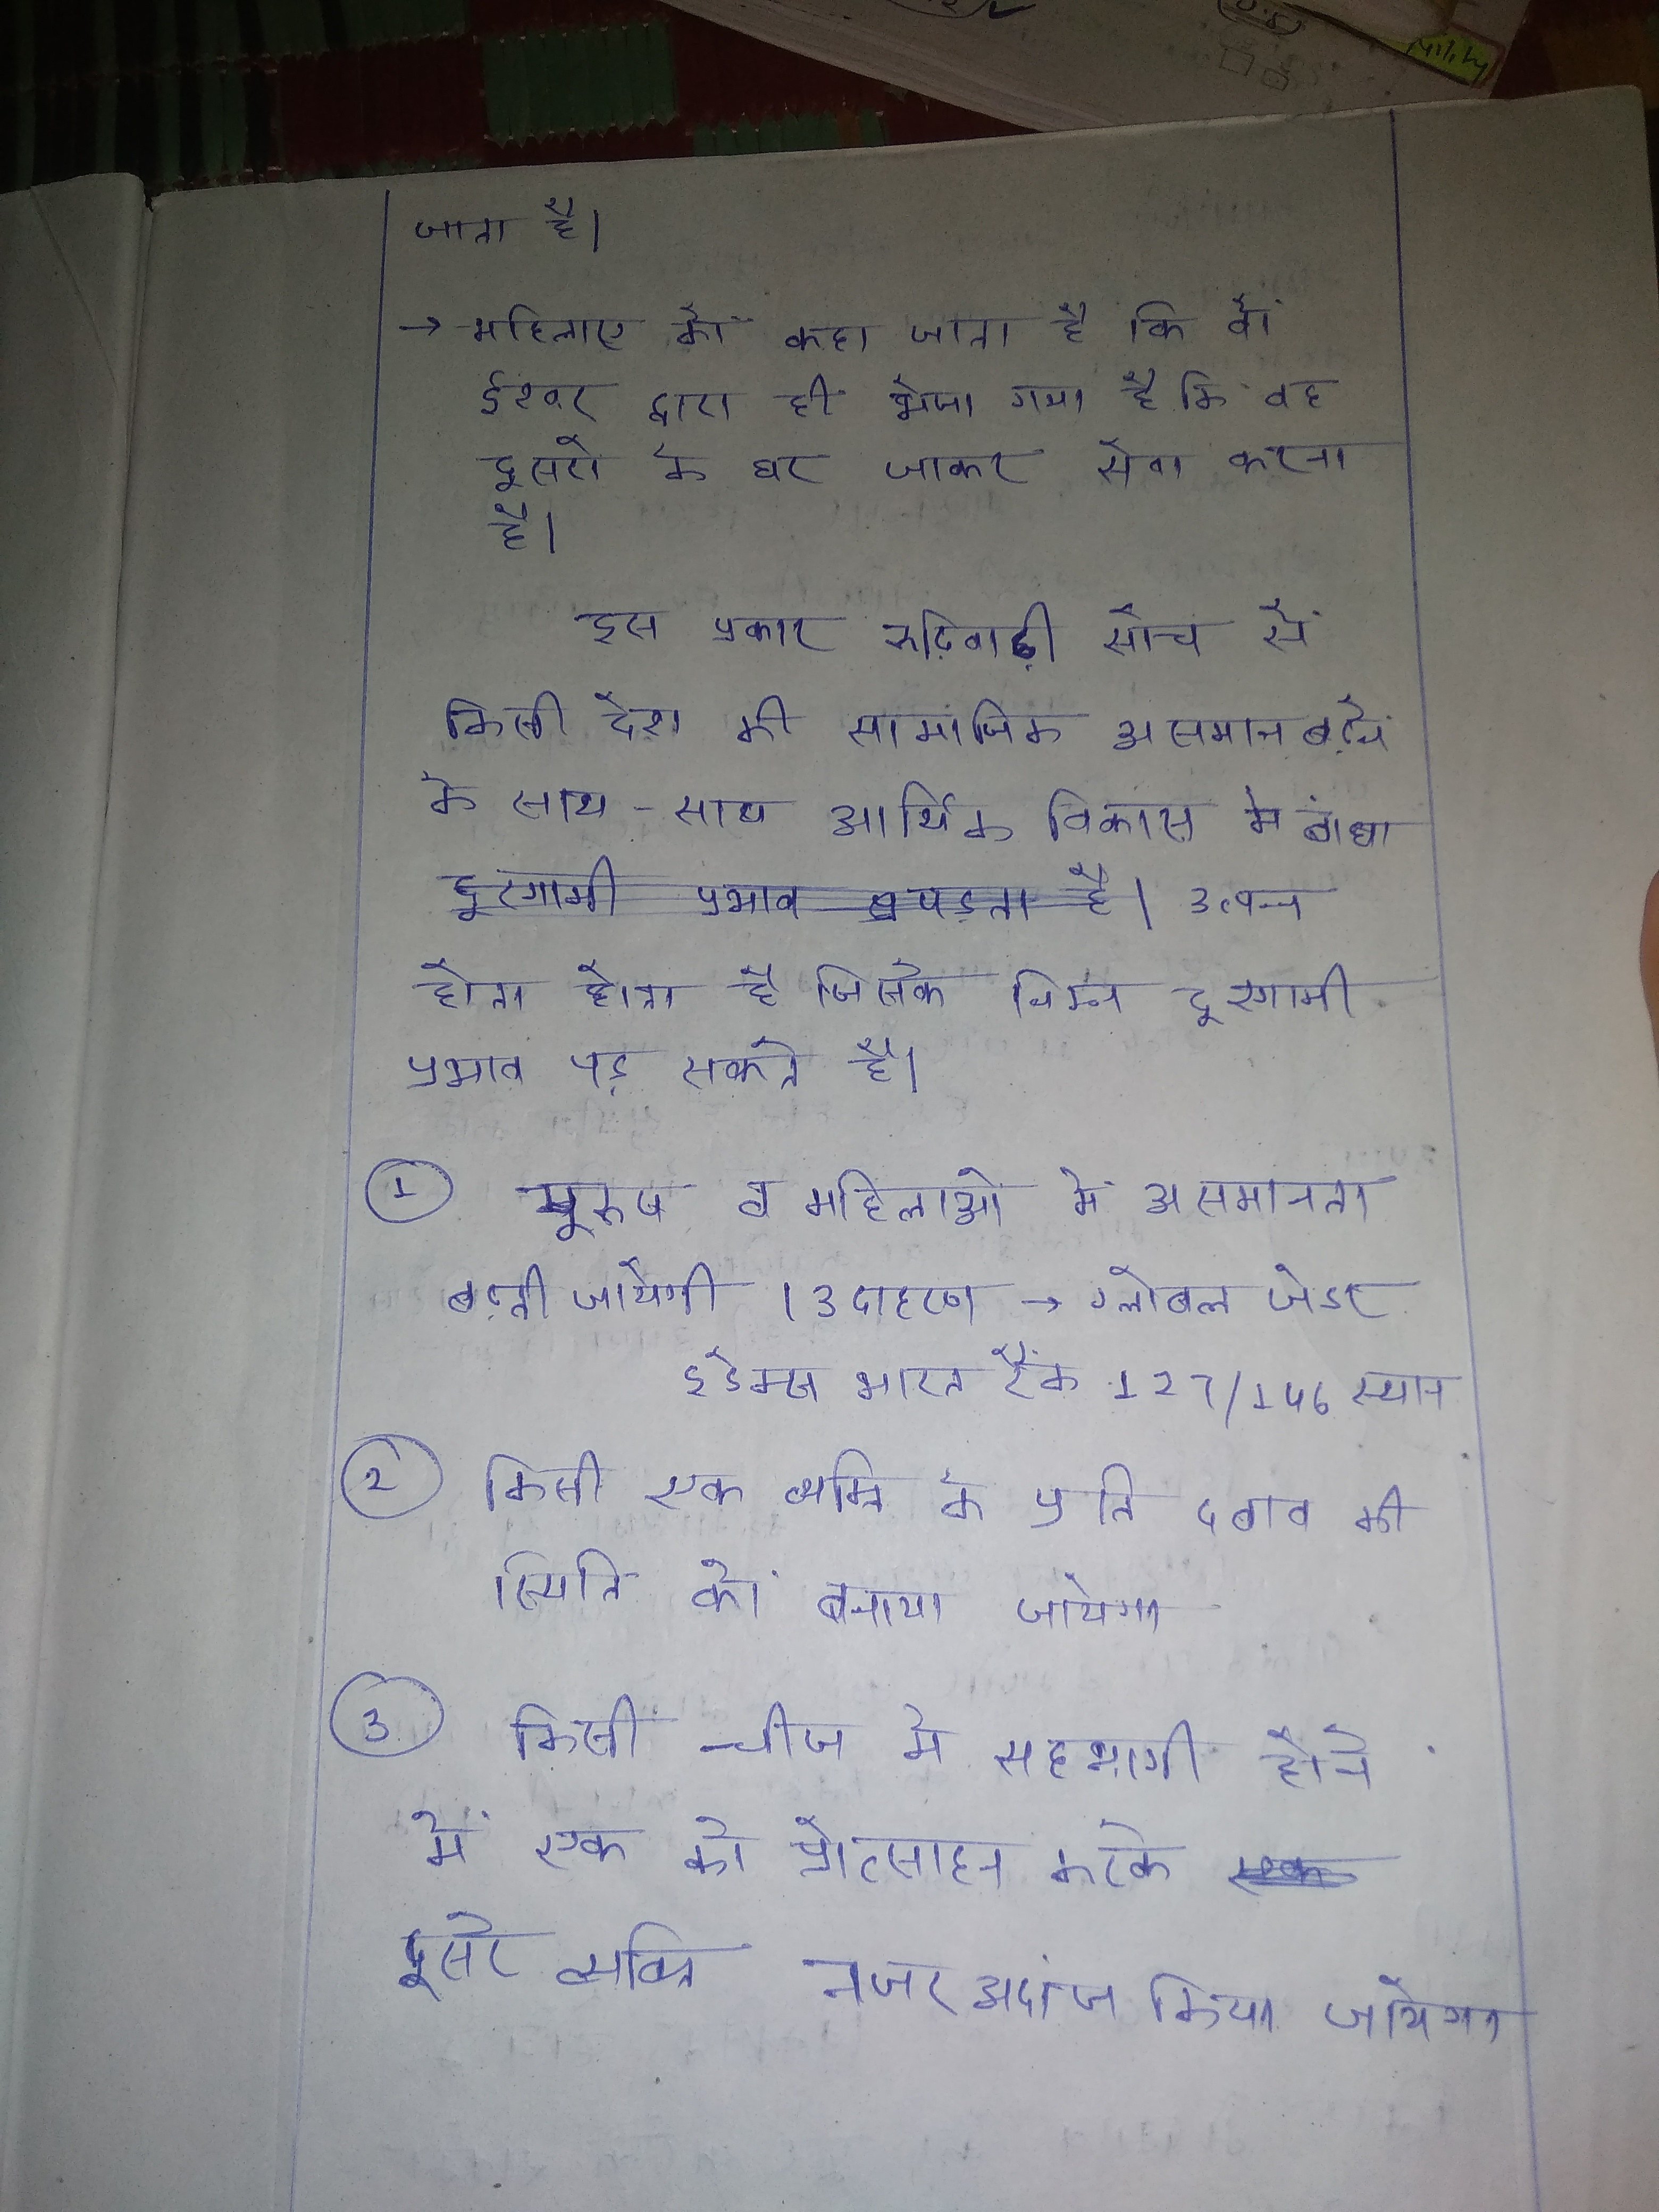 Mility
जाता है।
→ महिलाए को कहा जाता है कि वों
ईश्वर द्वारा ही भेजा गया है कि वह
दूसरो के घर जाकर सेवा करना
है।
इस प्रकार रूढ़िवाढ़ी सोच सें
किसी देश की सामाजिक असमान बढ़ने
के साथ - साथ आर्थिक विकास मे बांधा
दूरगामी प्रभाव पड़ता है। उत्पन्न
होता होता है जिसके निम्न दूरगामी
प्रभाव पड़ सकते है।
① पूरुष व महिलाओ में असमानता
बढ़ती जायेगी । उदाहरण → ग्लोबल जेडर
इंडेक्स भारत रैंक 127/146 स्थान
② किसी एक व्यक्ति के प्रति दबाव की
स्थिति कों बनाया जायेगा
③ किसी चीज मे सहभागी होने
में एक को प्रोत्साहन करके एक
दूसरे व्यक्ति नजर अदांज किया जायेगा